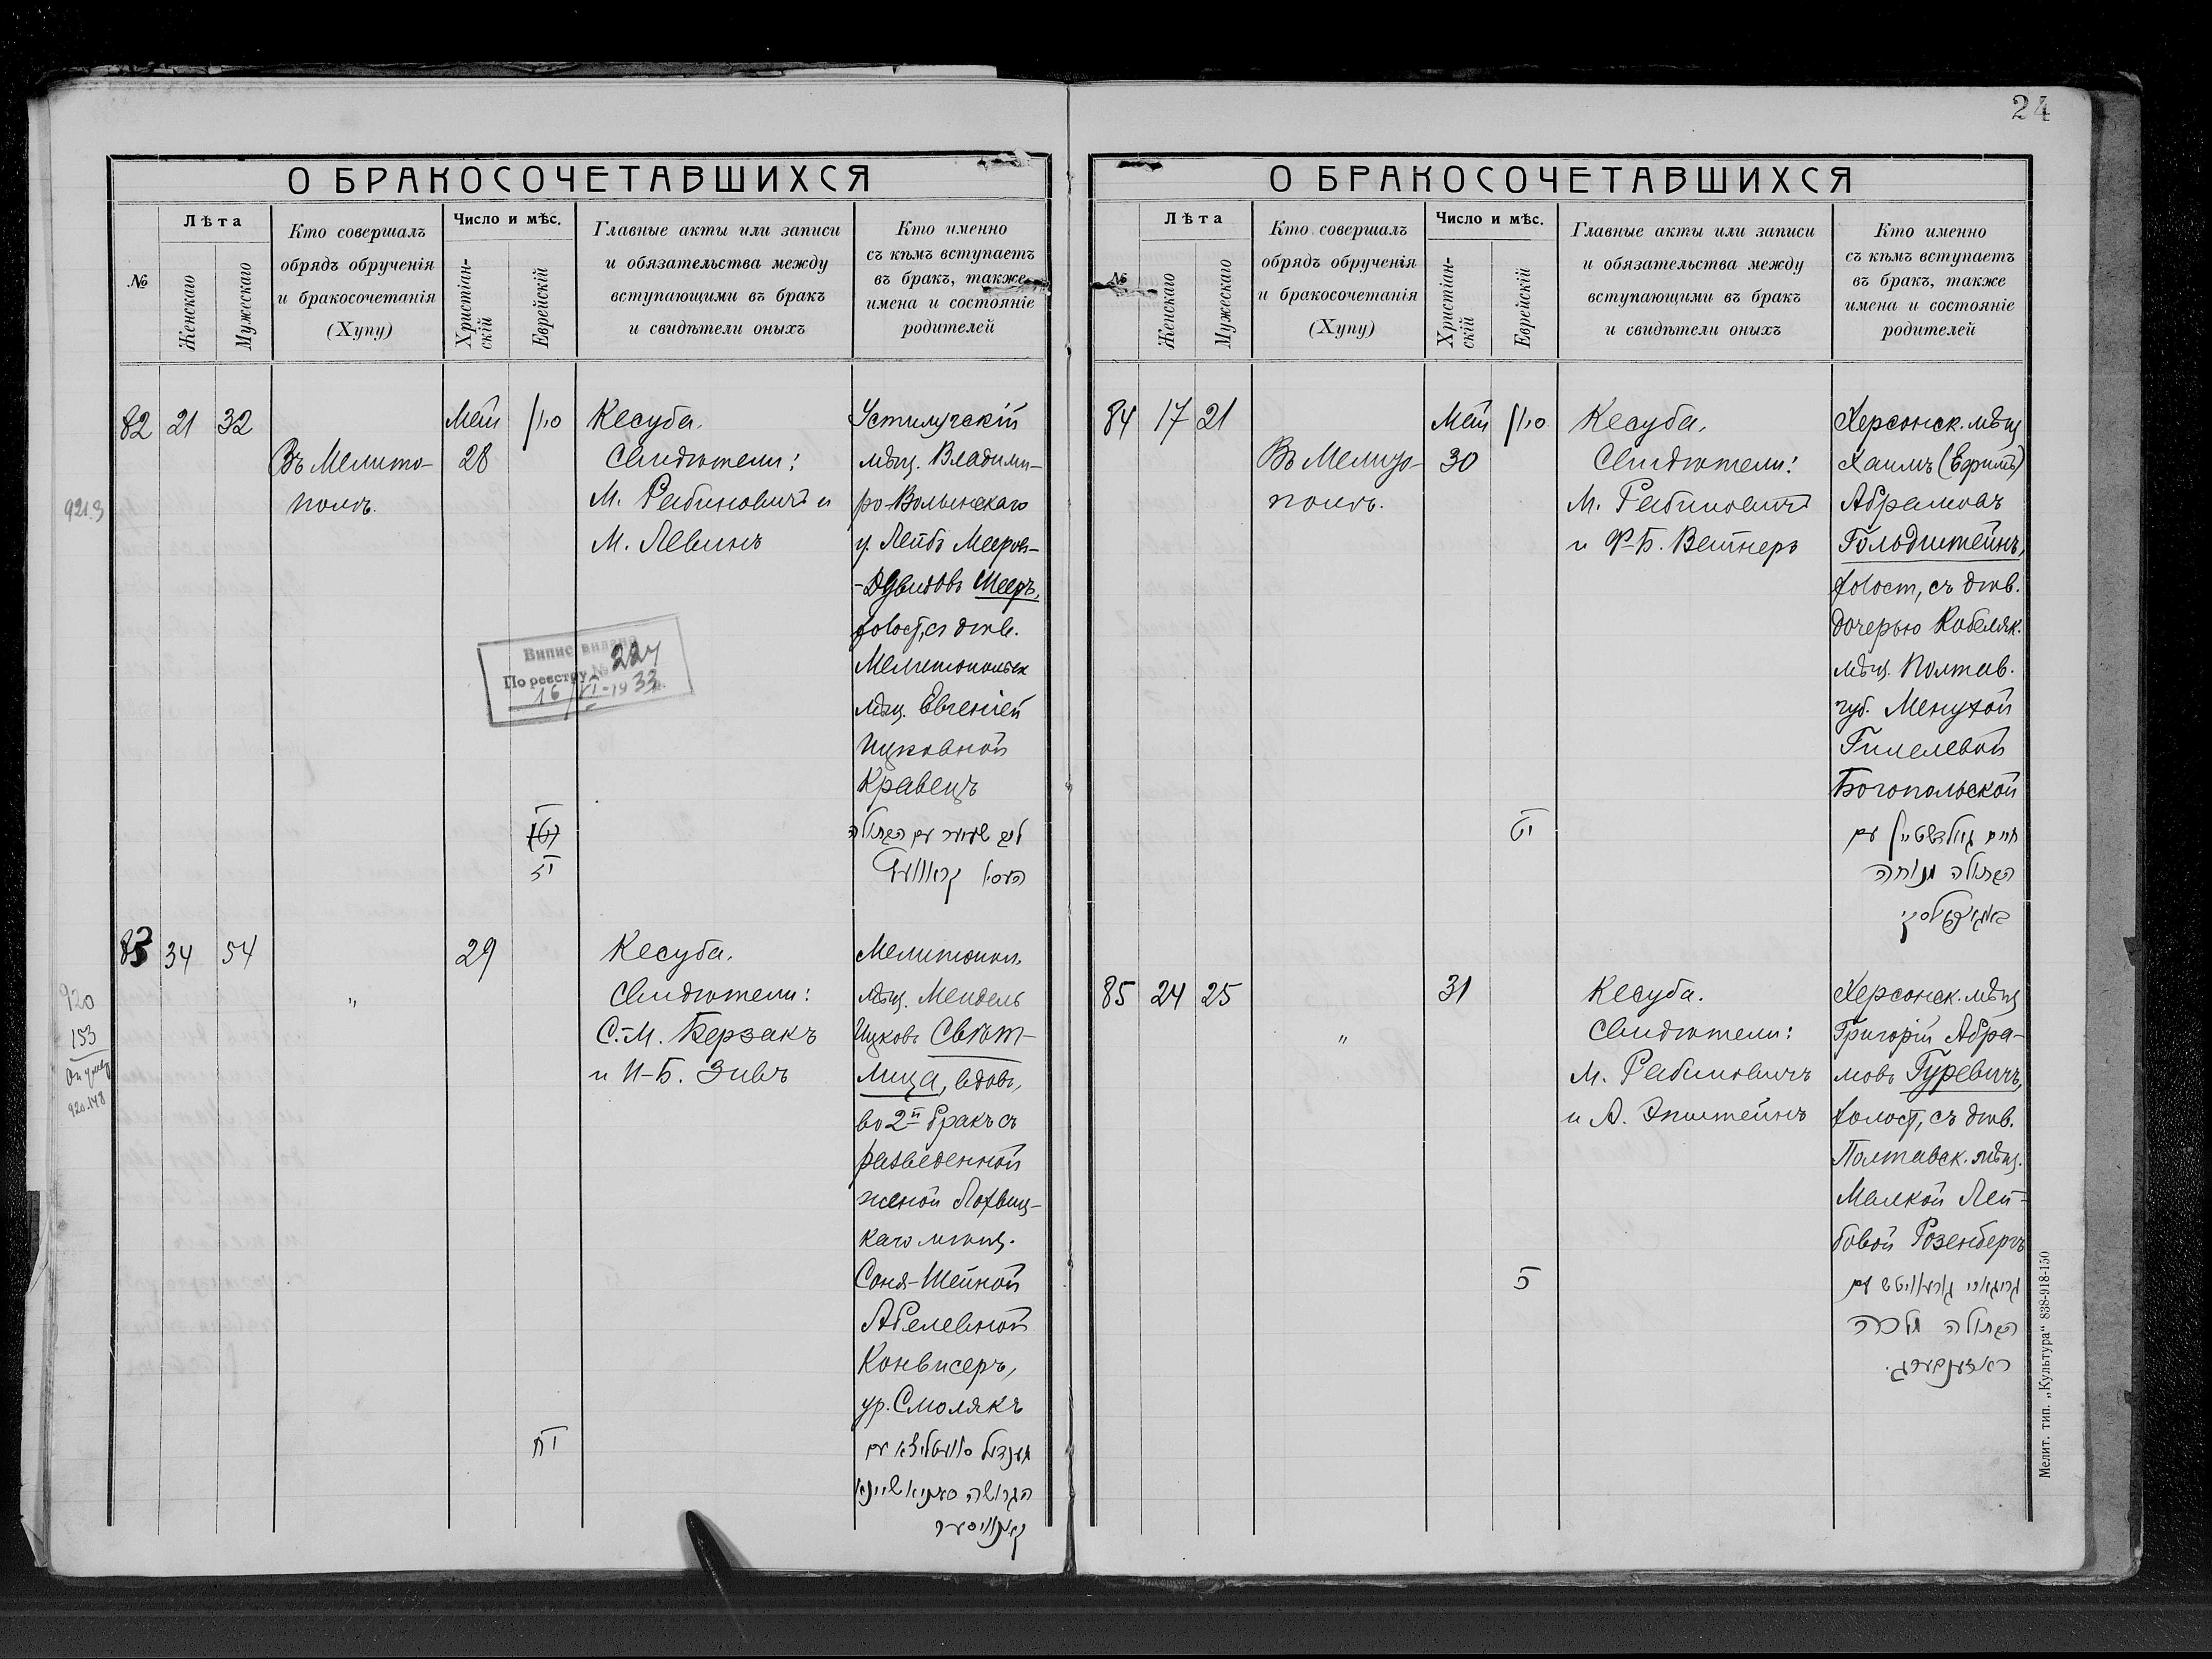 24
О БРАКОСОЧЕТАВШИХСЯ
№
Лѣта
Женскаго
Мужескаго
Кто совершалъ
обрядъ обрученія
и бракосочетанія
(Хупу)
Число и мѣс.
Христіан-
скій
Еврейскій
Главные акты или записи
и обязательства между
вступающими въ бракъ
и свидѣтели оныхъ
Кто именно
съ кѣмъ вступаетъ
въ бракъ, также
имена и состояніе
родителей
82 21 32
Въ Мелито-
полѣ.
Май
28
Кесуба.
Свидѣтели:
М. Рабиновичъ и
М. Левинъ
Устилугскій
мѣщ. Владими-
ро-Волынскаго
у. Лейбъ Мееров-
-Дувидовъ Шееръ,
холост, съ дѣв.
Мелитопольск
мѣщ. Евгеніей
Ицковной
Кравецъ
ליב שעער עם הבתולה
9213
Випис видано
По реестру № 224
16/VI-1933
83 34 54
"
29
Кесуба.
Свидѣтели:
С.-М. Берзакъ
и И-Б. Зивъ
Мелитопол.
мѣщ. Мендель
Ицковъ Свѣт-
лица, вдов,
во 2й бракъ съ
разведенной
женой Лохвиц-
каго мѣщ.
Соня-Шейной
Абелевной
Конвисеръ,
ур. Смолякъ
יח
הגרושה
קאנוויסער
920
153
О БРАКОСОЧЕТАВШИХСЯ
№
Лѣта
Женскаго
Мужескаго
Кто совершалъ
обрядъ обрученія
и бракосочетанія
(Хупу)
Число и мѣс.
Христіан-
скій
Еврейскій
Главные акты или записи
и обязательства между
вступающими въ бракъ
и свидѣтели оныхъ
Кто именно
съ кѣмъ вступаетъ
въ бракъ, также
имена и состояніе
родителей
84 17 21
Въ Мелито-
полѣ.
Май
30
Кесуба.
Свидѣтели:
М. Рабиновичъ
и Ф-Б. Вейнеръ
Херсонск. мѣщ
Хаимъ (Ефимъ)
Абрамовъ
Гольдштейнъ,
холост, съ дѣв.
дочерью Кобеляк.
мѣщ. Полтав.
губ. Менухой
Гилелевой
Богопольской
יט
חיים גולדשטיין עם
הבתולה מנוחה
85 24 25
"
31
Кесуба.
Свидѣтели:
М. Рабиновичъ
и А. Эпштейнъ
Херсонск. мѣщ
Григорій Абра-
мовъ Гуревичъ,
холост, съ дѣв.
Полтавск. мѣщ.
Малкой Лей-
бовой Розенбергъ
כ
גריגארי גורעוויטש עם
הבתולה מלכה
ראזענבערג.
Мелит. тип. „Культура“ 838-918-150